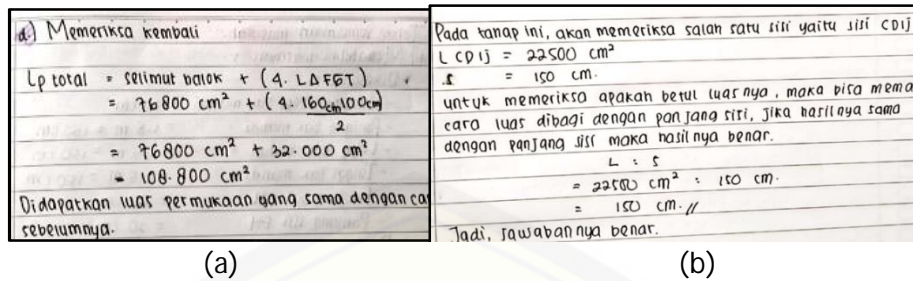 d.) Memeriksa kembali
Lp total = selimut balok + (4. L∆FGT)
= 76800 cm² + (4. 160cm.100cm)
2
= 76800 cm² + 32.000 cm²
= 108.800 cm²
Didapatkan luas permukaan yang sama dengan ca
sebelumnya.
Pada tahap ini, akan memeriksa salah satu sisi yaitu sisi CDIJ
L CDIJ = 22500 cm²
s = 150 cm.
untuk memeriksa apakah betul luasnya, maka bisa mema
cara luas dibagi dengan panjang sisi, jika hasilnya sama
dengan panjang sisi maka hasilnya benar.
L : s
= 22500 cm² : 150 cm.
= 150 cm.//
Jadi, jawabannya benar.
(a)
(b)